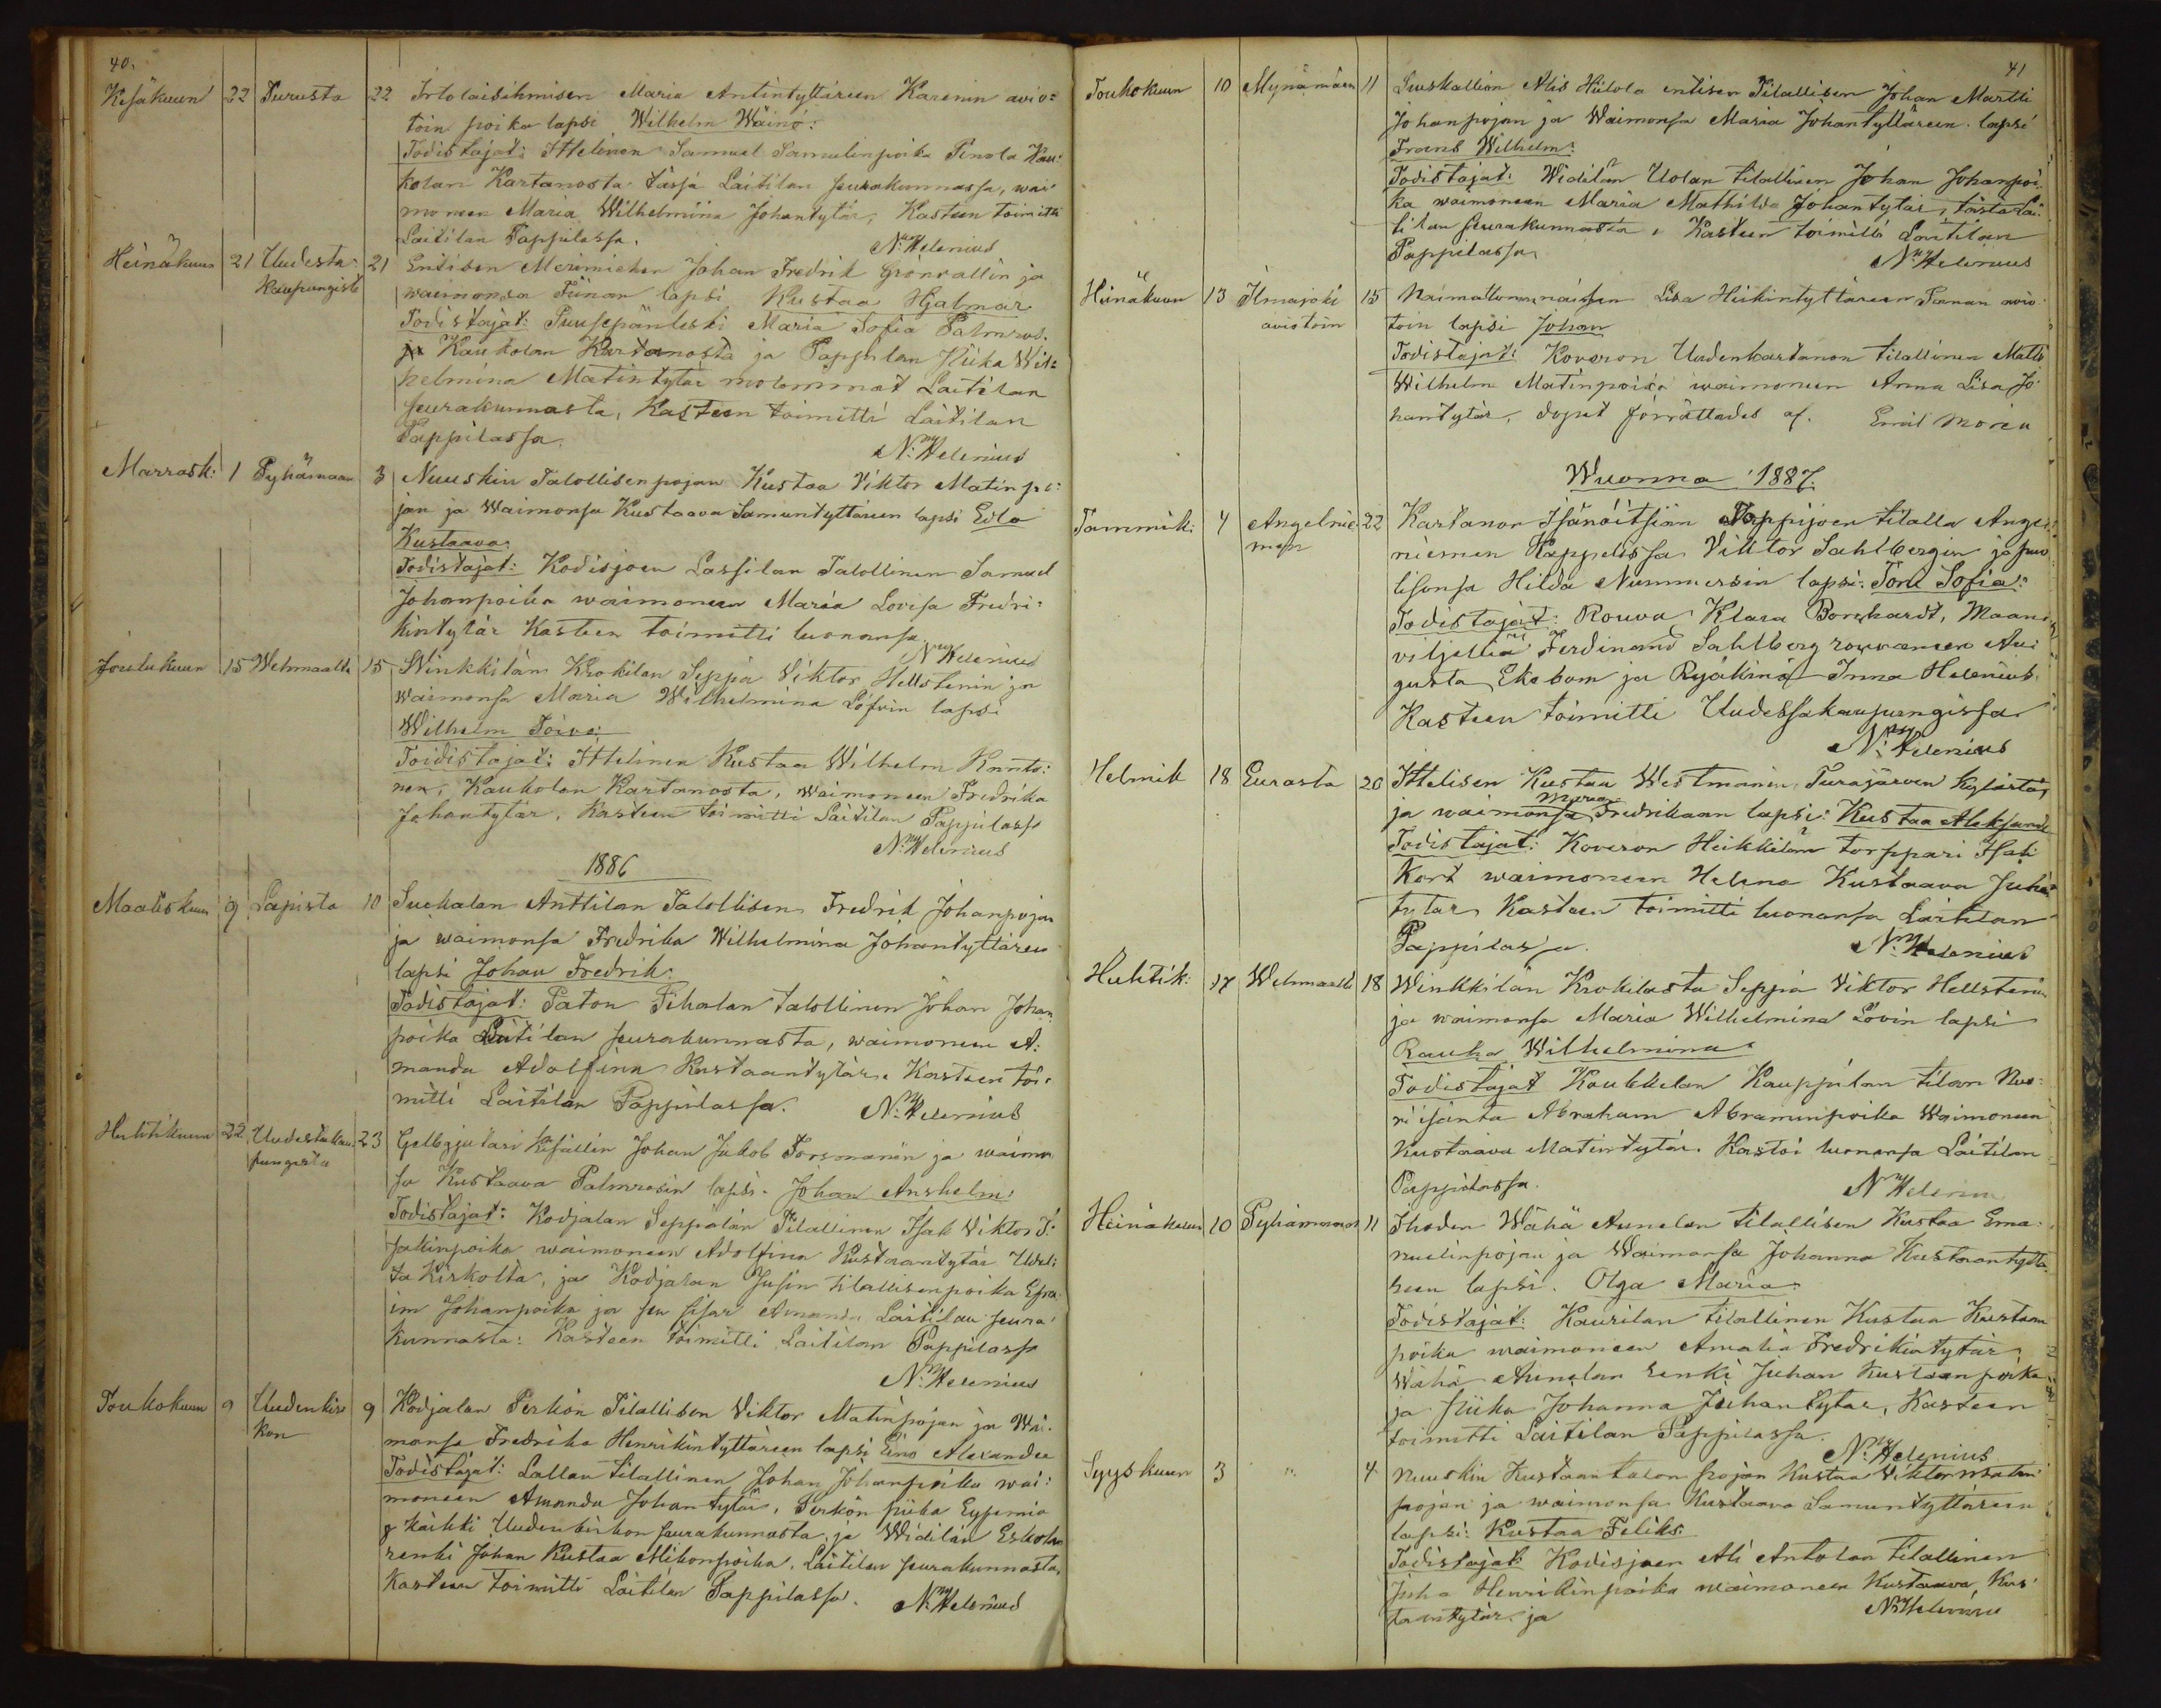 40.
Kesäkuun 22 Turusta 22 Irtolaisihmisen Maria Antintyttäreen Karenin avio=
toin poika lapsi Wilhelm Wäinö:
Todistajat: Ittelinen Samuel Samulinpoika Pinola Kau:
kolan Kartanosta tässä Laitilan seurakunnassa, wai
moneen Maria Wilhelmiina Johantytär, Kasteen toimitti
Laitilan Pappilassa.
N: Helenius
Heinäkuun 21 Uudesta 21 Entisen Merimiehen Johan Fredrik Grönvallin ja
Kaupungista waimonsa Fiinan lapsi Kustaa Hjalmar
Todistajat: Puusepänleski Maria Sofia Palmros.
ja Kaukolan Kartanosta ja Pappilan Piika Wil=
helmina Matintytär molemmat Laitilan
seurakunnasta, Kasteen toimitti Laitilan
Pappilassa.
N: Helenius
Marrask: 1 Pyhämaan 3 Nuuskin Talollisen pojan Kustaa Viktor Matin po:
jan ja Waimonsa Kustaava Samuntyttäreen lapsi Edla
Kustaava:
Todistajat: Kodisjoen Lassilan Talollinen Samuel
Johanpoika waimoneen Maria Lovisa Fredri=
kintytär Kasteen toimitti luonansa
N Helenius
Joulukuun 15 Wehmaalta 15 Winkkilän Krokilan Seppä Viktor Hellstenin ja
Waimonsa Maria Wilhelmina Löfvin lapsi
Wilhelm Toivo:
Toidistajat: Ittelinen Kustaa Wilhelm Kanto:
nen, Kaukolan Kartanosta, Waimoneen Fredrika
Johantytär, Kasteen toimitti Laitilan Pappilassa
N: Helenius
1886
Maaliskuun 9 Lapista 10 Suckalan Anttilan Talollisen Fredrik Johanpojan
ja waimonsa Fredrika Wilhelmina Johantyttären
lapsi Johan Fredrik:
Todistajat: Paton Pihalan talollinen Johan Johan
poika Laitilan seurakunnasta, waimoneen A:
manda Adolfina Kustaantytär. Kasteen toi:
mitti Laitilan Pappilassa.
N: Helenius
Huhtikuun 22 Uudestakau: 23 Gelbgjutari Kisällin Johan Jakob Forsmanin ja waimo
pungista sa Kustaava Palmrosin lapsi. Johan Anshelm:
Todistajat: Kodjalan Seppälän Tilallinen Isak Viktor I:
sakinpoika waimoneen Adolfina Kustaantytär Uudi:
ta Kirkolta, ja Kodjalan Jusin tilallisenpoika Efra
im Johanpoika ja sen sisar Amanda Laitilan seura:
kunnasta: Kasteen toimitti Laitilan Pappilassa
N: Helenius
Toukokuun 9 Uudenkir 9 Kodjalan Perkön Tilallisen Viktor Matinpojan ja Wai.
kon monsa Fredrika Henrikintyttäreen lapsi Eino Alexander
Todistajat: Lallan tilallinen Johan Johanpoika wai:
moneen Amanda Johantytär, Perkön piika Eufemia
kaikki Uudenkirkon seurakunnasta, ja Widilän Eskolan
renki Johan Kustaa Mikonpoika, Laitilan seurakunnasta,
Kasteen toimitti Laitilan Pappilassa.
N: Helenius
41
Toukokuun 10 Mynämäen 11 Suuskallion Alis Hiilola entisen Tilallisen Johan Martti
Johanpojan ja Waimonsa Maria Johantyttäreen lapsi
Frans Wilhelm:
Todistajat: Widilän Uolan tilallinen Johan Johanpoi.
ka waimoneen Maria Mathilda Johantytär, tästä Lai:
tilan seurakunnasta, Kasteen toimitti Laitilan
Pappilassa
N: Helenius
Heinäkuun 13 Ilmajoki 15 Naimattoman naisen Lisa Heikintyttäreen Panan avio
aviotoin toin lapsi Johan
Todistajat: Koveron Uudenkartanon tilallinen Matti
Wilhelm Matinpoika waimoneen Anna Lisa Jo
hantytär, dopet förrättades af. Emil Moren
Wuonna 1887.
Tammik: 4 Angelnie 22 Kartanon Isänöitsiän Pappijoen tilalla Angel
men niemen Kappelissa Viktor Sahlbergin ja puo
lisonsa Hilda Nummersin lapsi: Toni Sofia:
Todistajat: Rouva Klara Borchardt, Maan
viljeliä Ferdinand Sahlberg rouvaneen Au
gusta Ekebom ja Ryökinä Inna Helenius.
Kasteen toimitti Uudessakaupungissa
N: Helenius
Helmik 18 Eurasta 20 Ittelisen Kustaa Westmanin, Turajärven kylästä,
ja waimonsa Maria Fredrikaan lapsi: Kustaa Aleksander
Todistajat: Koveron Heikkilän torppari Isak
Kort waimoneen Helena Kustaava Juha
tytär, Kasteen toimitti luonansa Laitilan
Pappilassa.
N: Helenius
Huhtik: 17 Wehmaalta 18 Winkkilän Krokilasta Seppä Viktor Hellstenin
ja waimonsa Maria Wilhelmina Lovin lapsi
Rauha Wilhelmina
Todistajat Koukkelan Kauppilan tilan Nuo:
ri isäntä Abraham Abraminpoika Waimoneen
Kustaava Matintytär. Kastoi luonansa Laitilan
Pappilassa.
N Helenius
Heinäkuun 10 Pyhämaan 11 Ihoden Wähä Aunelan tilallisen Kustaa Ema:
nuelinpojan ja Waimonsa Johanna Kustaantyttä
reen lapsi. Olga Maria:
Todistajat: Kaurilan tilallinen Kustaa Kustaan
poika waimoneen Amalia Fredrikintytär,
Wähä Aunelan renki Juhan Kustaanpoika
ja piika Johanna Juhantytär, Kasteen
toimitti Laitilan Pappilassa.
N: Helenius
Syyskuun 3 " 4 Nuuskin Kustaan talon pojan Kustaa Viktor Matin
pojan ja waimonsa Kustaava Samuntyttäreen
lapsi: Kustaa Feliks.
Todistajat: Kodisjoen Ali Antolan tilallinen
Juha Henrikinpoika waimoneen Kustaava Kus
tantytär ja
N: Helenius